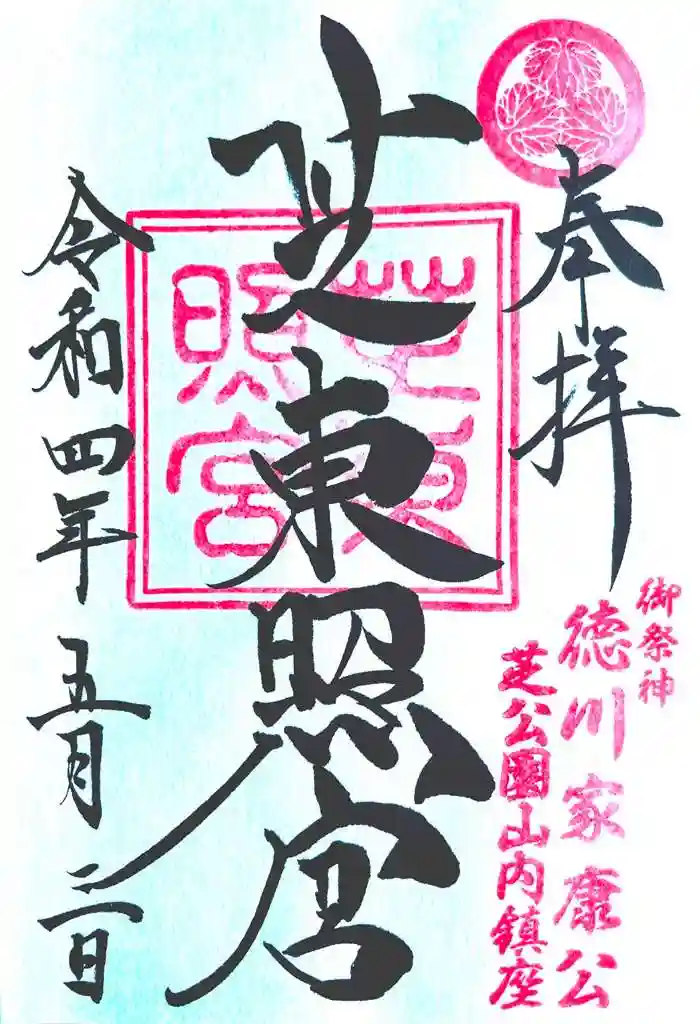 奉拝
御祭神
徳川家康公
芝公園山内鎮座
芝東照宮
芝東
照宮
令和四年五月 日